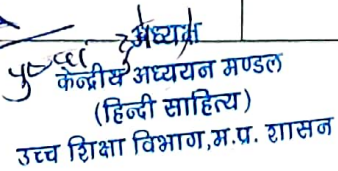 अध्यक्ष
केन्द्रीय अध्ययन मण्डल
(हिन्दी साहित्य)
उच्च शिक्षा विभाग,म.प्र. शासन